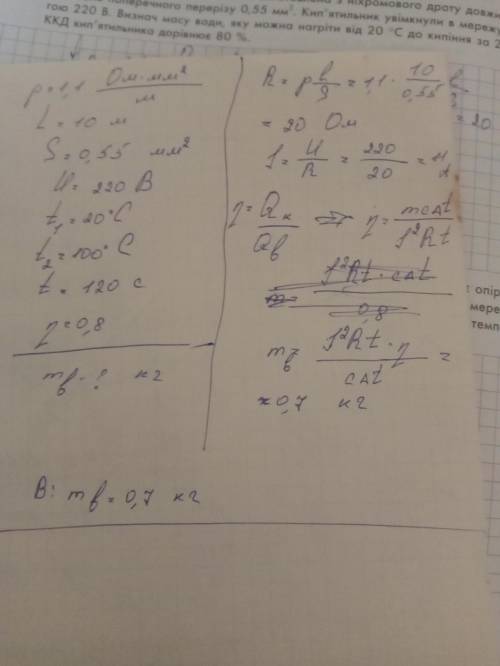 поперечного перерізу 0,55 мм². Кип'ятильник увімкнули в мережу
гою 220 В. Визнач масу води, яку можна нагріти від 20 °C до кипіння за 2
ККД кип'ятильника дорівнює 80 %.
ρ = 1,1 Ом·мм²/м
L = 10 м
S = 0,55 мм²
U = 220 В
t₁ = 20°C
t₂ = 100°C
t = 120 c
η = 0,8
mв - ? кг
R = ρ l/S = 1,1 · 10/0,55
= 20 Ом
I = U/R = 220/20 = 11 A
η = Qк/Qв ⇒ η = mcΔt/I²Rt
m = I²Rt · cΔt/0,8
mв = I²Rt · η/cΔt =
≈ 0,7 кг
В: mв = 0,7 кг
= 20
опір
мере
темп